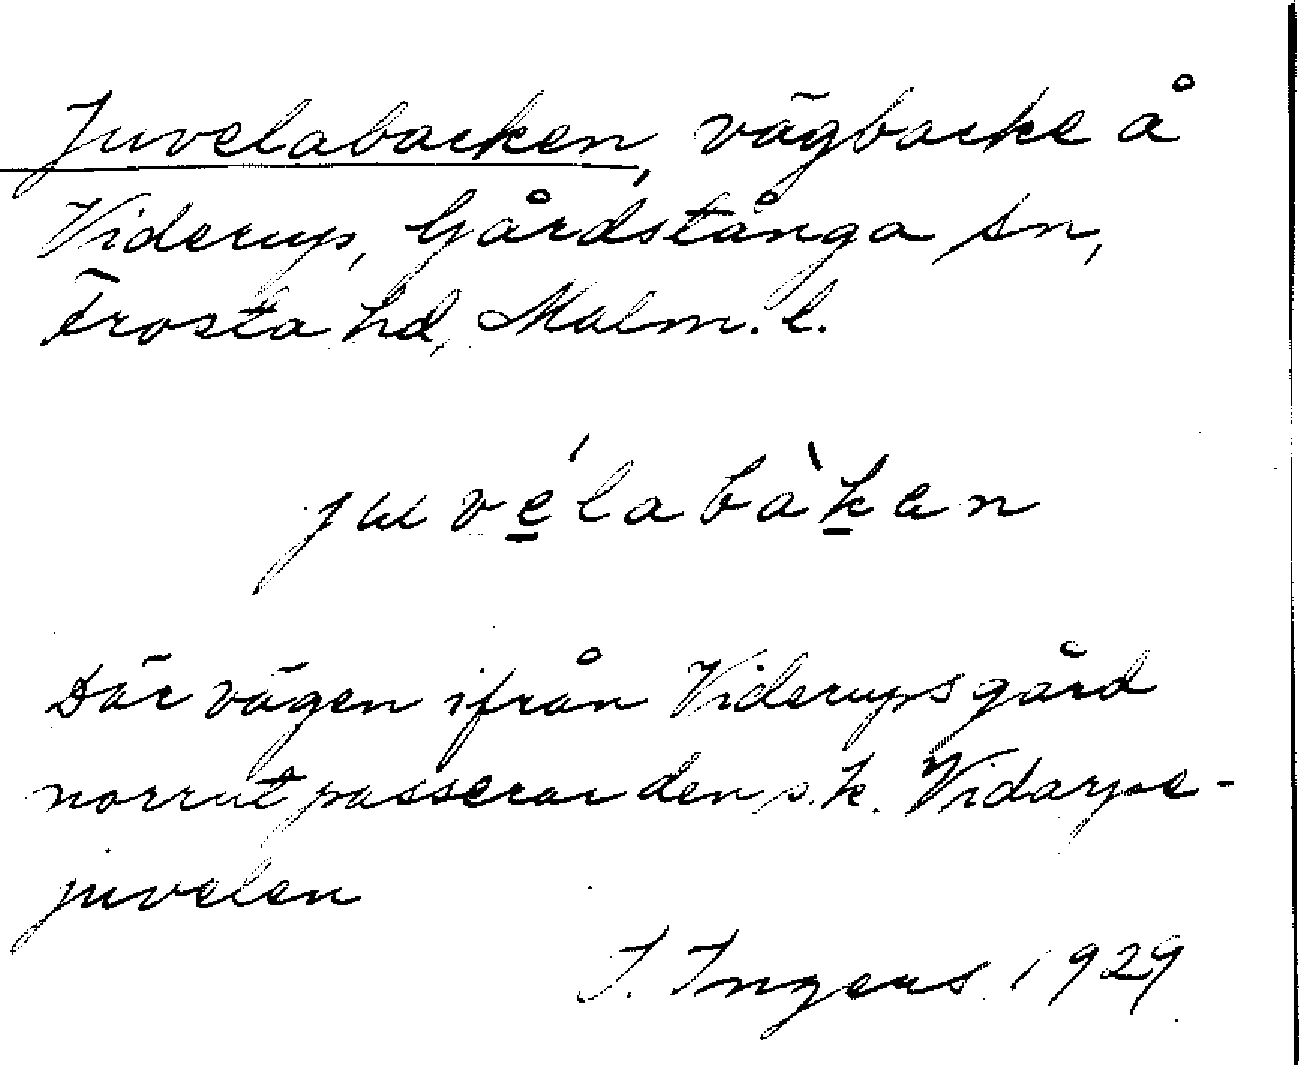 Juvelabacken, vägbacke å
Viderup, Gårdstånga sn,
Frosta hd, Malm. l.
juvélabàken
Där vägen ifrån Viderupsgård
norrut passerar den s.k. Vidarpe-
juvelen
I. Ingers 1929